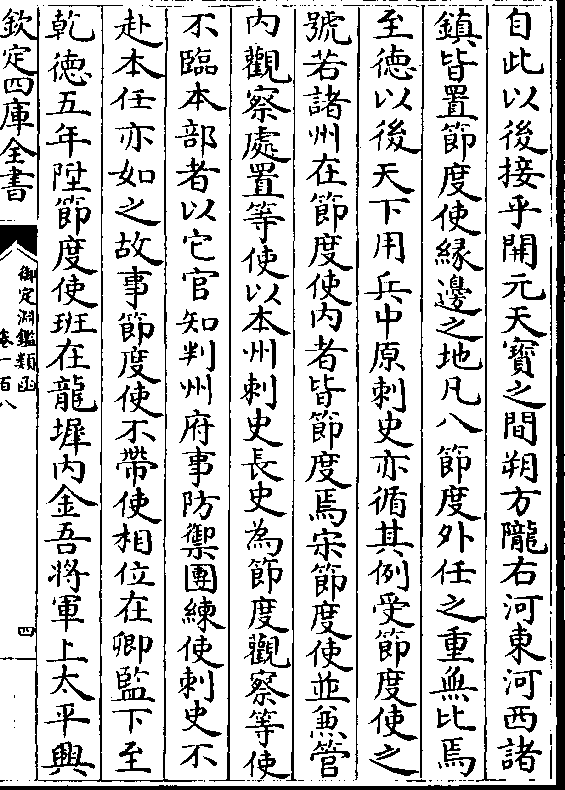 自此以後接乎開元天寶之間朔方隴右河東河西諸
鎮皆置節度使緣邊之地凡八節度外任之重無比焉
至德以後天下用兵中原刺史亦循其例受節度使之
號若諸州在節度使内者皆節度焉宋節度使並兼管
内觀察處置等使以本州刺史長史為節度觀察等使
不臨本部者以它官知判州府事防禦團練使刺史不
赴本任亦如之故事節度使不帶使相位在卿監下至
乾德五年陞節度使班在龍墀内金吾將軍上太平興
欽定四庫全書
御定淵鑑類函
卷一百八
四